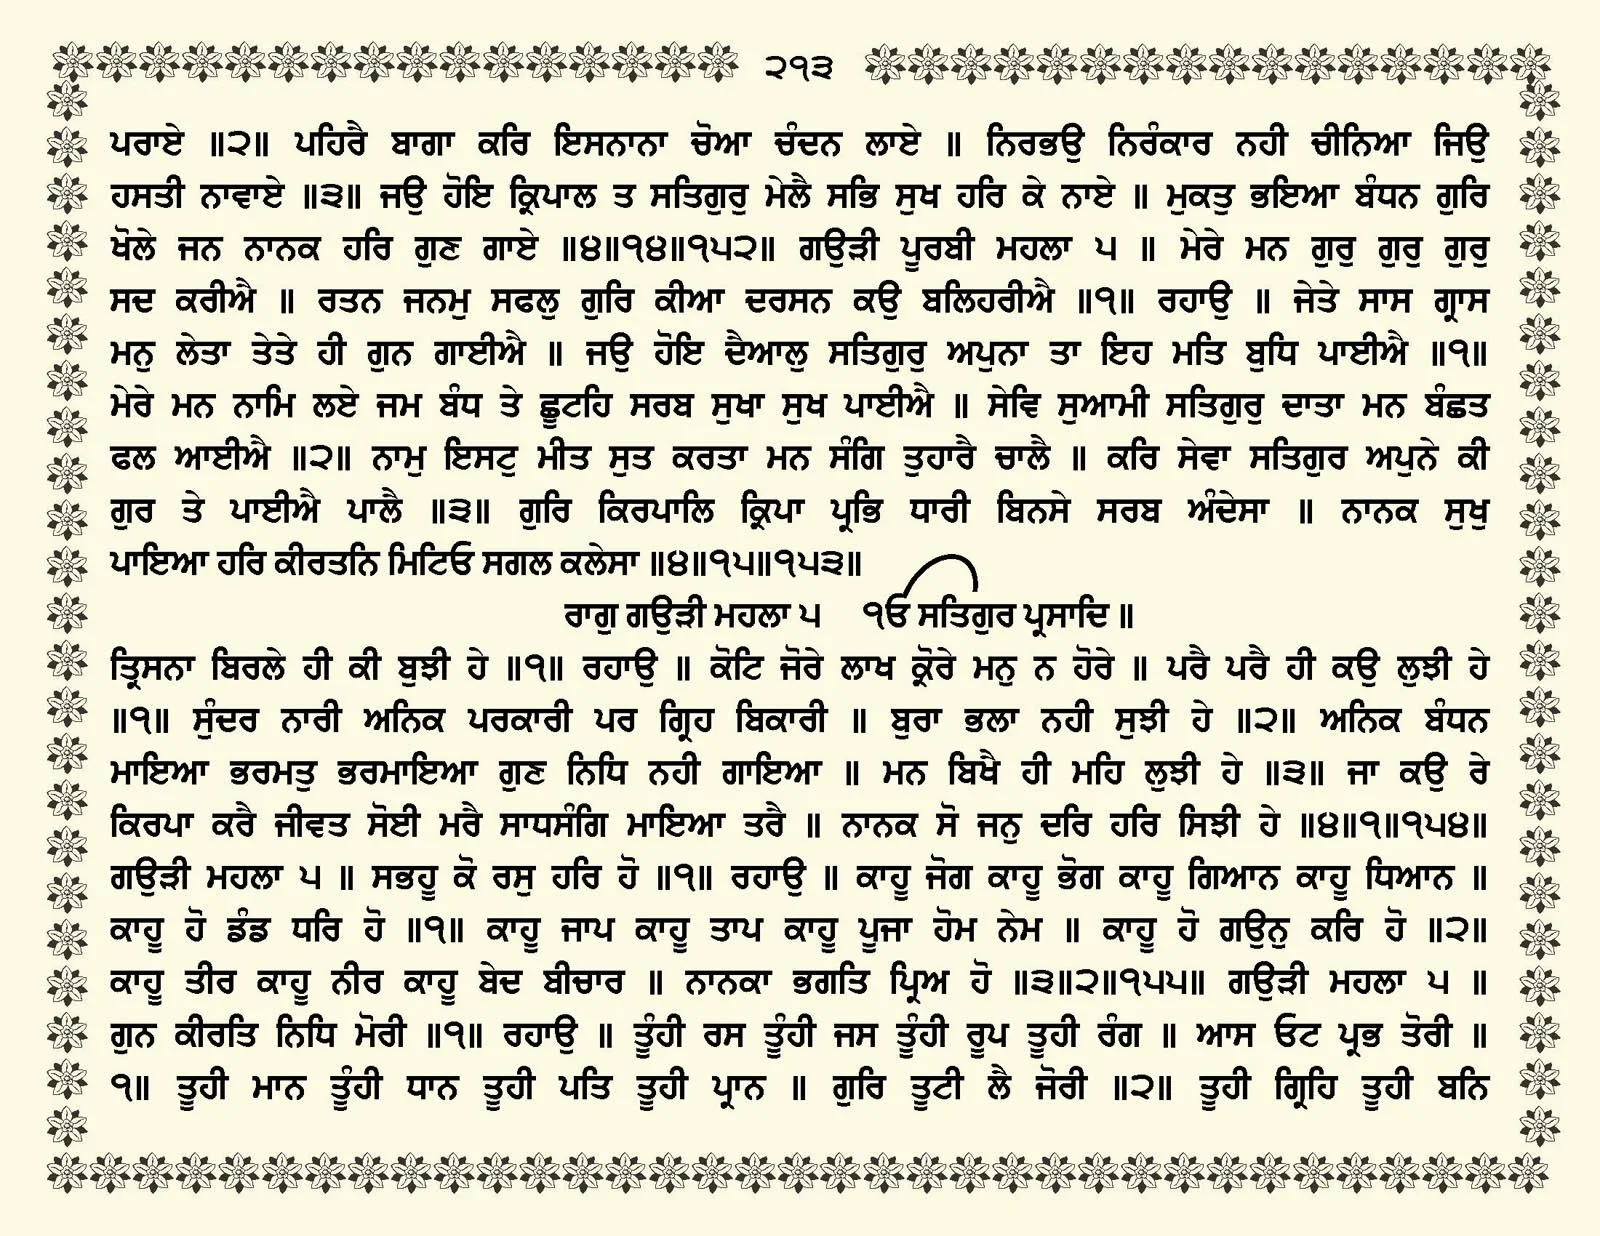 ੨੧੩
ਪਰਾਏ ॥੨॥ ਪਹਿਰੈ ਬਾਗਾ ਕਰਿ ਇਸਨਾਨਾ ਚੋਆ ਚੰਦਨ ਲਾਏ ॥ ਨਿਰਭਉ ਨਿਰੰਕਾਰ ਨਹੀ ਚੀਨਿਆ ਜਿਉ
ਹਸਤੀ ਨਾਵਾਏ ॥੩॥ ਜਉ ਹੋਇ ਕ੍ਰਿਪਾਲ ਤ ਸਤਿਗੁਰੁ ਮੇਲੈ ਸਭਿ ਸੁਖ ਹਰਿ ਕੇ ਨਾਏ ॥ ਮੁਕਤੁ ਭਇਆ ਬੰਧਨ ਗੁਰਿ
ਖੋਲੇ ਜਨ ਨਾਨਕ ਹਰਿ ਗੁਣ ਗਾਏ ॥੪॥੧੪॥੧੫੨॥ ਗਉੜੀ ਪੂਰਬੀ ਮਹਲਾ ੫ ॥ ਮੇਰੇ ਮਨ ਗੁਰੁ ਗੁਰੁ ਗੁਰੁ
ਸਦ ਕਰੀਐ ॥ ਰਤਨ ਜਨਮੁ ਸਫਲੁ ਗੁਰਿ ਕੀਆ ਦਰਸਨ ਕਉ ਬਲਿਹਰੀਐ ॥੧॥ ਰਹਾਉ ॥ ਜੇਤੇ ਸਾਸ ਗ੍ਰਾਸ
ਮਨੁ ਲੇਤਾ ਤੇਤੇ ਹੀ ਗੁਨ ਗਾਈਐ ॥ ਜਉ ਹੋਇ ਦੈਆਲੁ ਸਤਿਗੁਰੁ ਅਪੁਨਾ ਤਾ ਇਹ ਮਤਿ ਬੁਧਿ ਪਾਈਐ ॥੧॥
ਮੇਰੇ ਮਨ ਨਾਮਿ ਲਏ ਜਮ ਬੰਧ ਤੇ ਛੂਟਹਿ ਸਰਬ ਸੁਖਾ ਸੁਖ ਪਾਈਐ ॥ ਸੇਵਿ ਸੁਆਮੀ ਸਤਿਗੁਰੁ ਦਾਤਾ ਮਨ ਬੰਛਤ
ਫਲ ਆਈਐ ॥੨॥ ਨਾਮੁ ਇਸਟੁ ਮੀਤ ਸੁਤ ਕਰਤਾ ਮਨ ਸੰਗਿ ਤੁਹਾਰੈ ਚਾਲੈ ॥ ਕਰਿ ਸੇਵਾ ਸਤਿਗੁਰ ਅਪੁਨੇ ਕੀ
ਗੁਰ ਤੇ ਪਾਈਐ ਪਾਲੈ ॥੩॥ ਗੁਰਿ ਕਿਰਪਾਲਿ ਕ੍ਰਿਪਾ ਪ੍ਰਭਿ ਧਾਰੀ ਬਿਨਸੇ ਸਰਬ ਅੰਦੇਸਾ ॥ ਨਾਨਕ ਸੁਖੁ
ਪਾਇਆ ਹਰਿ ਕੀਰਤਨਿ ਮਿਟਿਓ ਸਗਲ ਕਲੇਸਾ ॥੪॥੧੫॥੧੫੩॥
ਰਾਗੁ ਗਉੜੀ ਮਹਲਾ ੫ ੴ ਸਤਿਗੁਰ ਪ੍ਰਸਾਦਿ ॥
ਤ੍ਰਿਸਨਾ ਬਿਰਲੇ ਹੀ ਕੀ ਬੁਝੀ ਹੇ ॥੧॥ ਰਹਾਉ ॥ ਕੋਟਿ ਜੋਰੇ ਲਾਖ ਕ੍ਰੋਰੇ ਮਨੁ ਨ ਹੋਰੇ ॥ ਪਰੈ ਪਰੈ ਹੀ ਕਉ ਲੁਝੀ ਹੇ
॥੧॥ ਸੁੰਦਰ ਨਾਰੀ ਅਨਿਕ ਪਰਕਾਰੀ ਪਰ ਗ੍ਰਿਹ ਬਿਕਾਰੀ ॥ ਬੁਰਾ ਭਲਾ ਨਹੀ ਸੁਝੀ ਹੇ ॥੨॥ ਅਨਿਕ ਬੰਧਨ
ਮਾਇਆ ਭਰਮਤੁ ਭਰਮਾਇਆ ਗੁਣ ਨਿਧਿ ਨਹੀ ਗਾਇਆ ॥ ਮਨ ਬਿਖੈ ਹੀ ਮਹਿ ਲੁਝੀ ਹੇ ॥੩॥ ਜਾ ਕਉ ਰੇ
ਕਿਰਪਾ ਕਰੈ ਜੀਵਤ ਸੋਈ ਮਰੈ ਸਾਧਸੰਗਿ ਮਾਇਆ ਤਰੈ ॥ ਨਾਨਕ ਸੋ ਜਨੁ ਦਰਿ ਹਰਿ ਸਿਝੀ ਹੇ ॥੪॥੧॥੧੫੪॥
ਗਉੜੀ ਮਹਲਾ ੫ ॥ ਸਭਹੂ ਕੋ ਰਸੁ ਹਰਿ ਹੋ ॥੧॥ ਰਹਾਉ ॥ ਕਾਹੂ ਜੋਗ ਕਾਹੂ ਭੋਗ ਕਾਹੂ ਗਿਆਨ ਕਾਹੂ ਧਿਆਨ ॥
ਕਾਹੂ ਹੋ ਡੰਡ ਧਰਿ ਹੋ ॥੧॥ ਕਾਹੂ ਜਾਪ ਕਾਹੂ ਤਾਪ ਕਾਹੂ ਪੂਜਾ ਹੋਮ ਨੇਮ ॥ ਕਾਹੂ ਹੋ ਗਉਨੁ ਕਰਿ ਹੋ ॥੨॥
ਕਾਹੂ ਤੀਰ ਕਾਹੂ ਨੀਰ ਕਾਹੂ ਬੇਦ ਬੀਚਾਰ ॥ ਨਾਨਕਾ ਭਗਤਿ ਪ੍ਰਿਅ ਹੋ ॥੩॥੨॥੧੫੫॥ ਗਉੜੀ ਮਹਲਾ ੫ ॥
ਗੁਨ ਕੀਰਤਿ ਨਿਧਿ ਮੋਰੀ ॥੧॥ ਰਹਾਉ ॥ ਤੂੰਹੀ ਰਸ ਤੂੰਹੀ ਜਸ ਤੂੰਹੀ ਰੂਪ ਤੂਹੀ ਰੰਗ ॥ ਆਸ ਓਟ ਪ੍ਰਭ ਤੋਰੀ ॥
੧॥ ਤੂਹੀ ਮਾਨ ਤੂੰਹੀ ਧਾਨ ਤੂਹੀ ਪਤਿ ਤੂਹੀ ਪ੍ਰਾਨ ॥ ਗੁਰਿ ਤੂਟੀ ਲੈ ਜੋਰੀ ॥੨॥ ਤੂਹੀ ਗ੍ਰਿਹਿ ਤੂਹੀ ਬਨਿ